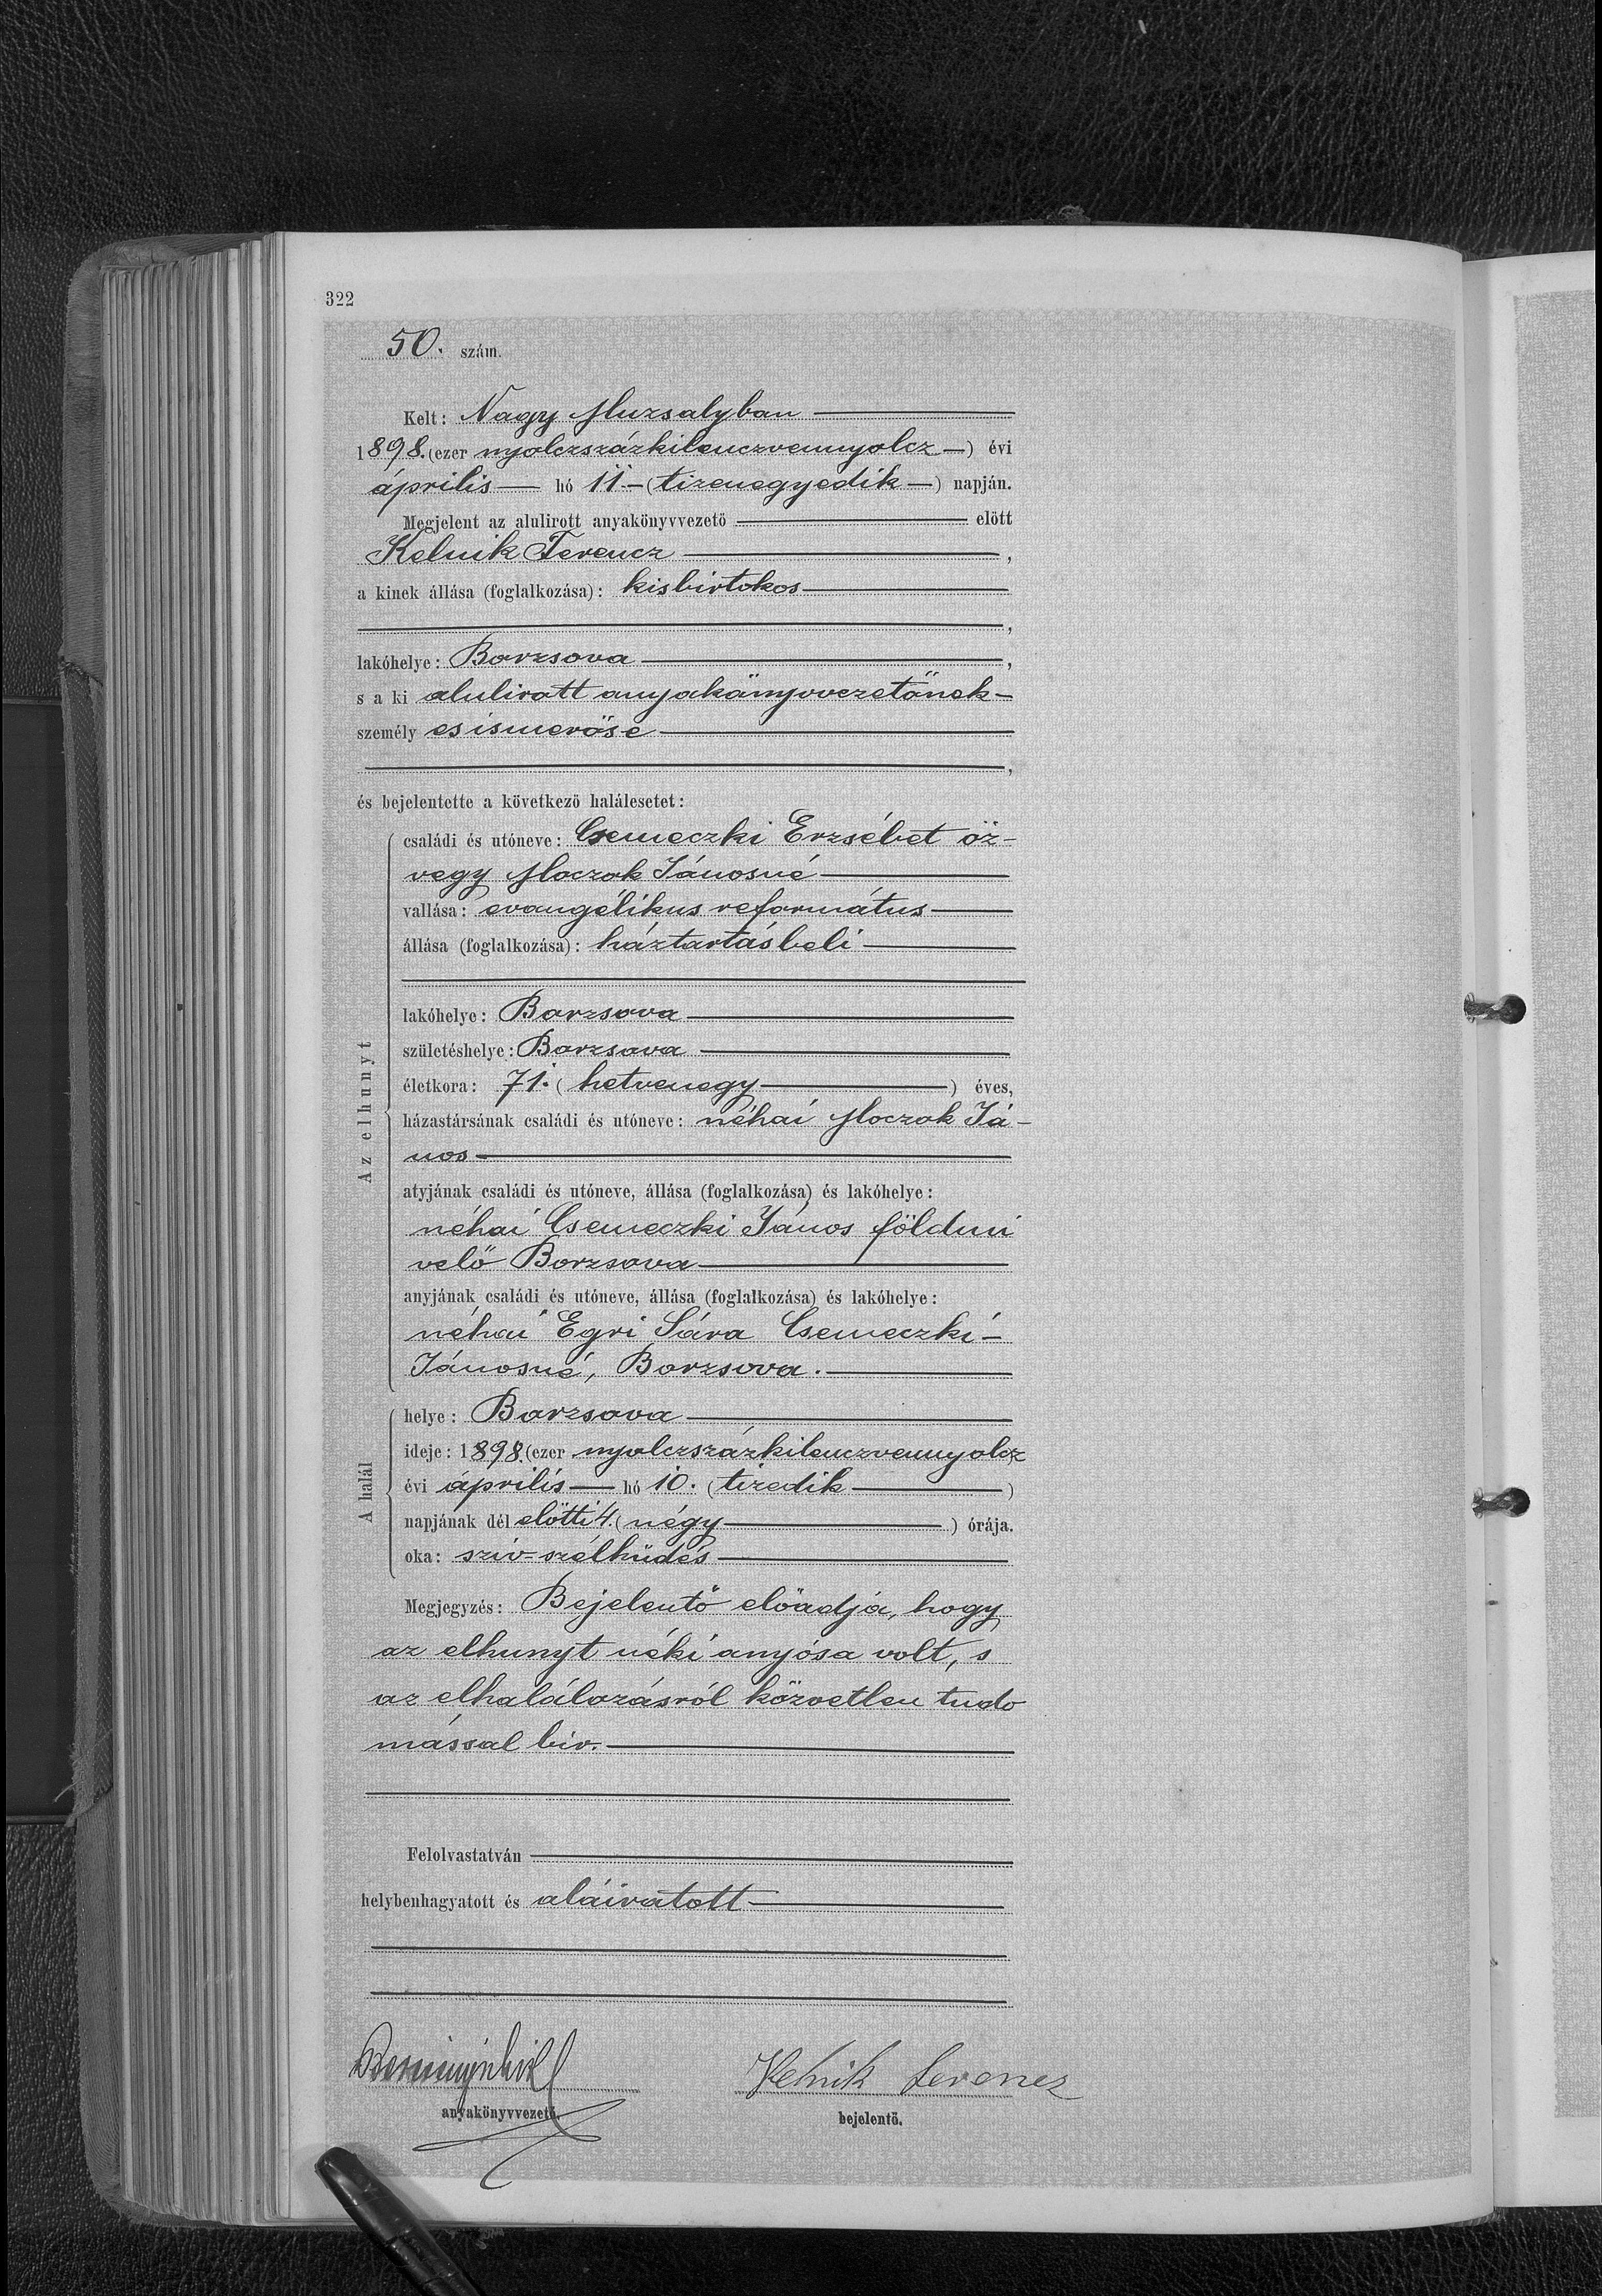 322
50. szám.
Kelt: Nagy Muzsalyban
1898. (ezer nyolczszázkilenczvennyolcz) évi
április hó 11 (tizenegyedik) napján.
Megjelent az alulirott anyakönyvvezető előtt
Kelnik Ferencz,
a kinek állása (foglalkozása): kisbirtokos
,
lakóhelye: Borzsova,
s a ki alulirott anyakönyvvezetőnek
személy es ismerőse
,
és bejelentette a következő halálesetet:
Az elhunyt
családi és utóneve: Csemeczki Erzsébet öz-
vegy Moczok Jánosné
vallása: evangélikus református
állása (foglalkozása): háztartásbeli
lakóhelye: Borzsova
születéshelye: Borzsova
életkora: 71. (hetvenegy) éves,
házastársának családi és utóneve: néhai Moczok Já-
nos
atyjának családi és utóneve, állása (foglalkozása) és lakóhelye:
néhai Csemeczki János földmi
velő Borzsova
anyjának családi és utóneve, állása (foglalkozása) és lakóhelye:
néhai Egri Sára Csemeczki-
Jánosné, Borzsova.
A halál
helye: Borzsova
ideje: 1898. (ezer nyolczszázkilenczvennyolcz
évi április hó 10. (tizedik)
napjának dél előtti 4. (négy) órája.
oka: sziv-szélhüdés
Megjegyzés: Bejelentő előadja, hogy
az elhunyt néki anyósa volt, s
az elhalálozásról közvetlen tudo
mással bir.
Felolvastatván
helybenhagyatott és aláiratott
anyakönyvvezető.
Kelnik Ferencz
bejelentő.